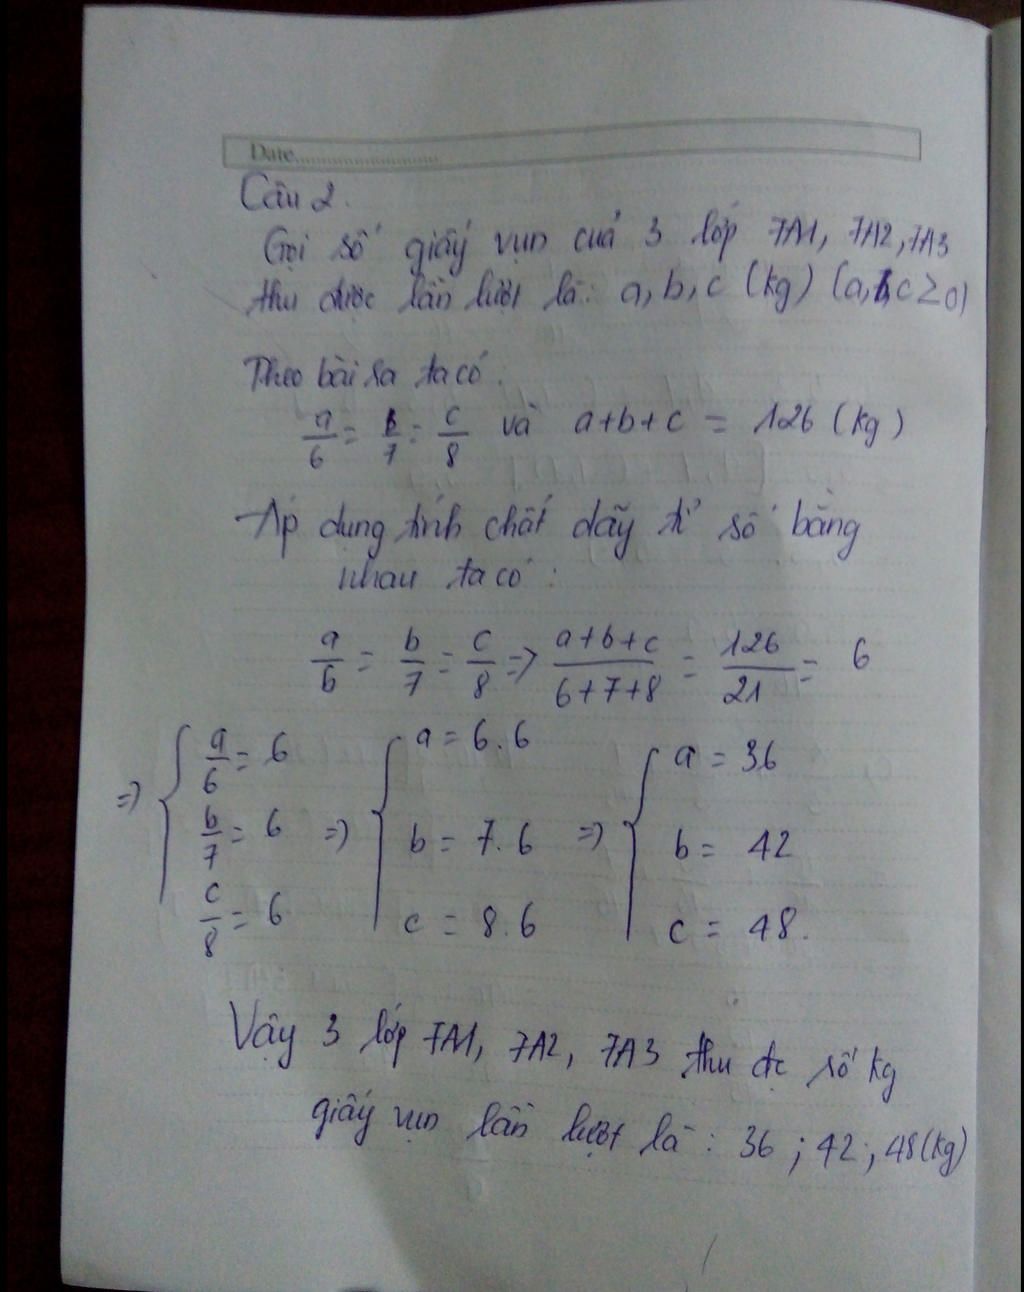 Date..............................
Câu 2.
Gọi số giấy vụn của 3 lớp 7A1, 7A2, 7A3
thu được lần lượt là: a, b, c (kg) (a, b, c ≥ 0)
Theo bài ra ta có:
a/6 = b/7 = c/8 và a+b+c = 126 (kg)
Áp dụng tính chất dãy tỉ số bằng
nhau ta có:
a/6 = b/7 = c/8 => (a+b+c)/(6+7+8) = 126/21 = 6
=> { a/6 = 6 { a = 6.6 { a = 36
b/7 = 6 => b = 7.6 => b = 42
c/8 = 6 c = 8.6 c = 48.
Vậy 3 lớp 7A1, 7A2, 7A3 thu đc số kg
giấy vụn lần lượt là: 36 ; 42 ; 48 (kg)